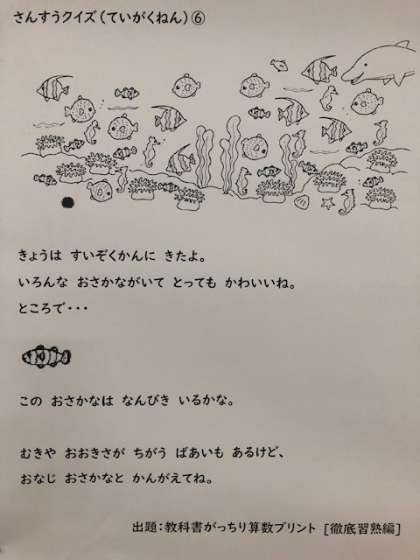 さんすうクイズ(ていがくねん)⑥
きょうは すいぞくかんに きたよ。
いろんな おさかながいて とっても かわいいね。
ところで・・・
この おさかなは なんびき いるかな。
むきや おおきさが ちがう ばあいも あるけど、
おなじ おさかなと かんがえてね。
出題:教科書がっちり算数プリント [徹底習熟編]